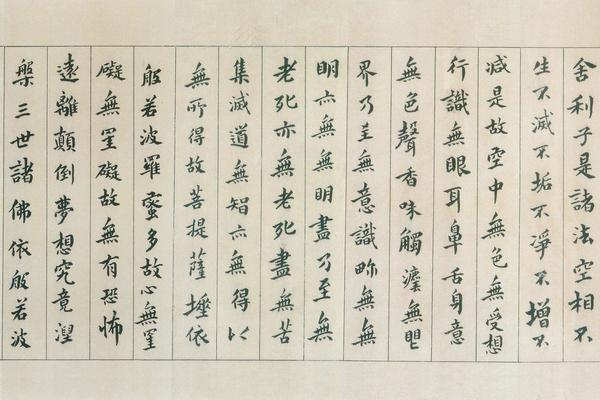 舍利子是諸法空相不
生不滅不垢不淨不增不
减是故空中無色無受想
行識無眼耳鼻舌身意
無色聲香味觸灋無眼
界乃至無意識畍無無
明亦無無明盡乃至無
老死亦無老死盡無苦
集滅道無智亦無得以
無所得故菩提薩埵依
般若波羅蜜多故心無罣
礙無罣礙故無有恐怖
遠離顛倒夢想究竟涅
槃三世諸佛依般若波